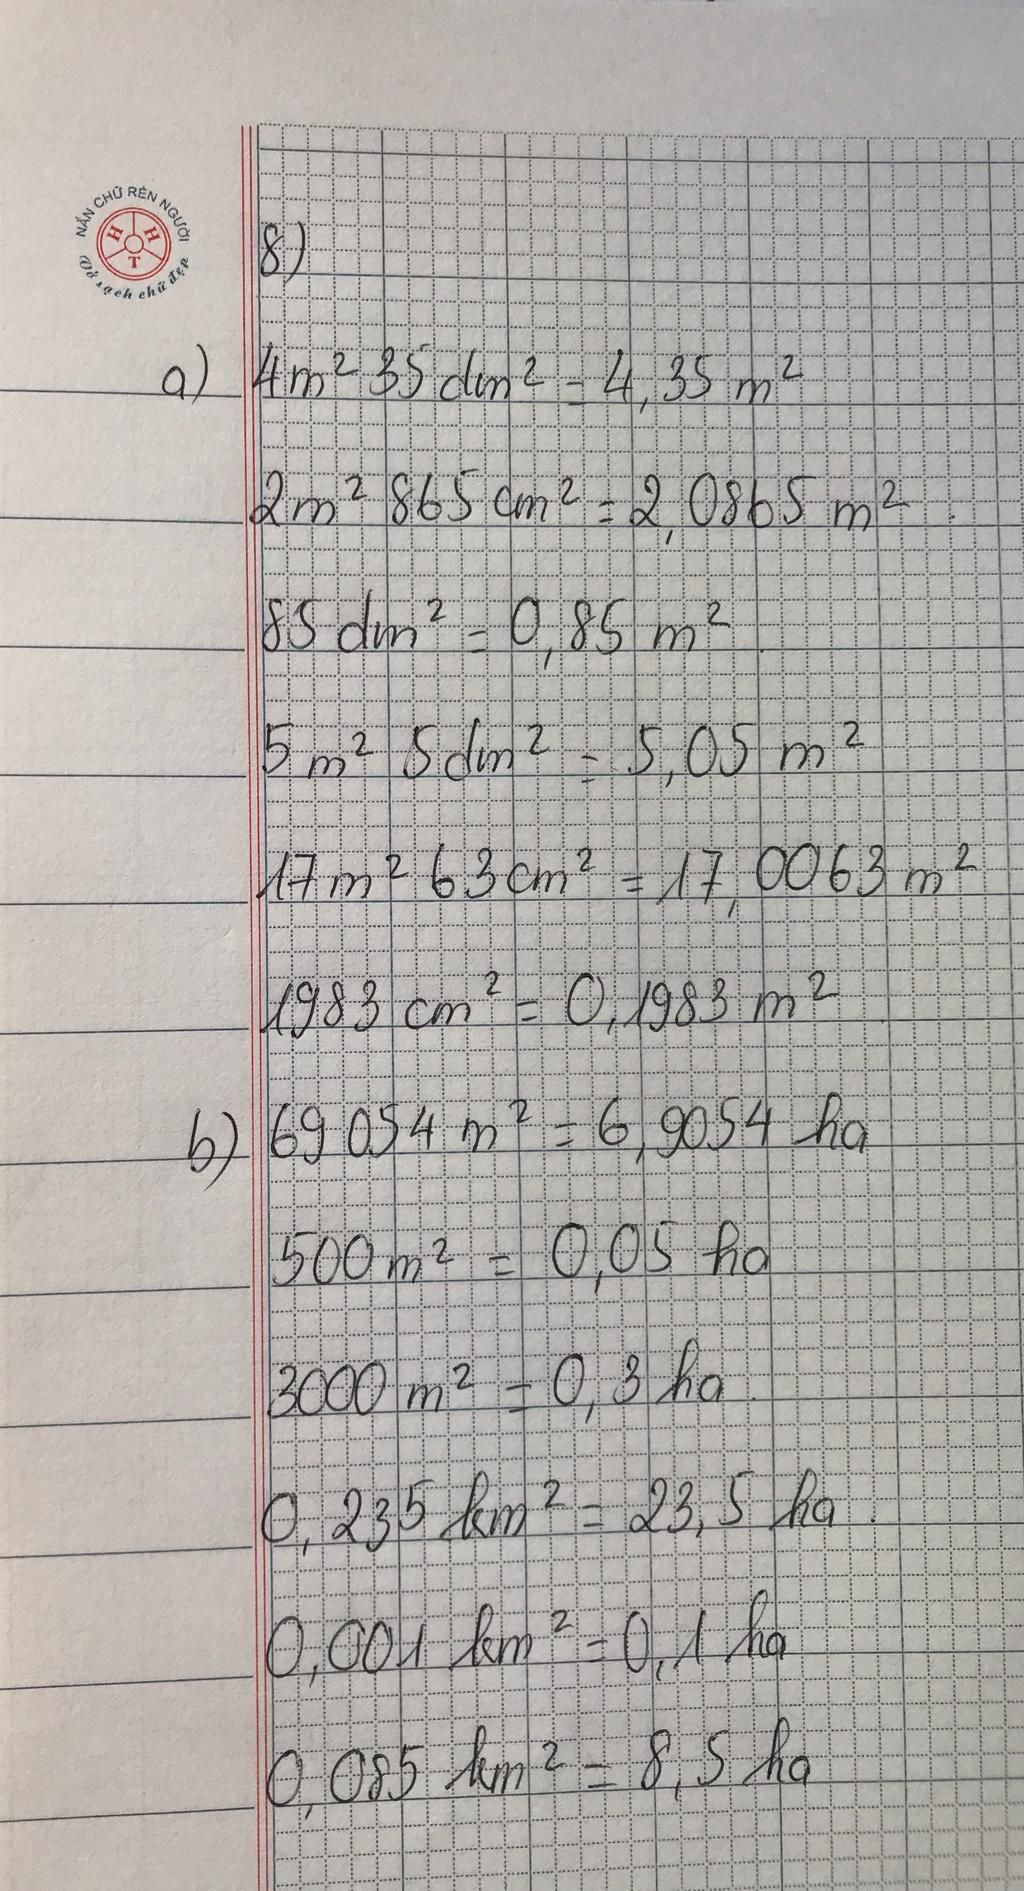 NẮN CHỮ RÈN NGƯỜI
H H
T
Vở sạch chữ đẹp
8)
a) 4m² 35 dm² = 4,35 m²
2m² 865 cm² = 2,0865 m².
85 dm² = 0,85 m².
5 m² 5 dm² = 5,05 m²
17 m² 63 cm² = 17,0063 m²
1983 cm² = 0,1983 m².
b) 69 054 m² = 6,9054 ha
500 m² = 0,05 ha
3000 m² = 0,3 ha.
0,235 km² = 23,5 ha.
0,001 km² = 0,1 ha
0,085 km² = 8,5 ha